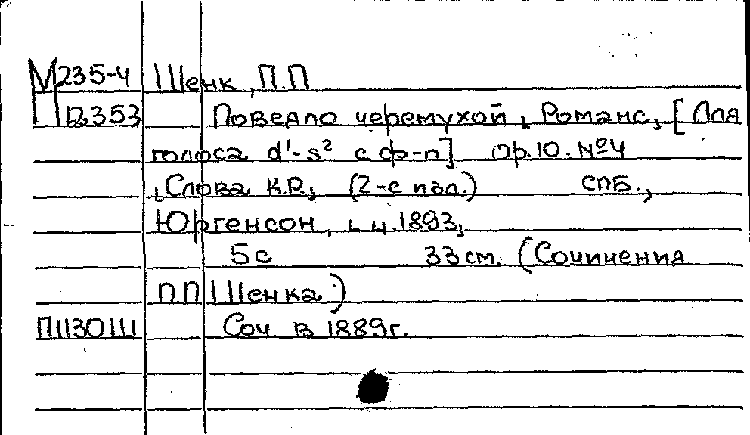 М235-4 Шенк, П.П
П В353 Поведло черемухой, Романс, [Для
голоса d'-s² с ф-п] Op.10. №4
, Слова К.Р., (2-е изд.) СПБ.,
Юргенсон, ц. 1893,
5с 33см. (Сочинения
П П Шенка)
Соч в 1889г.